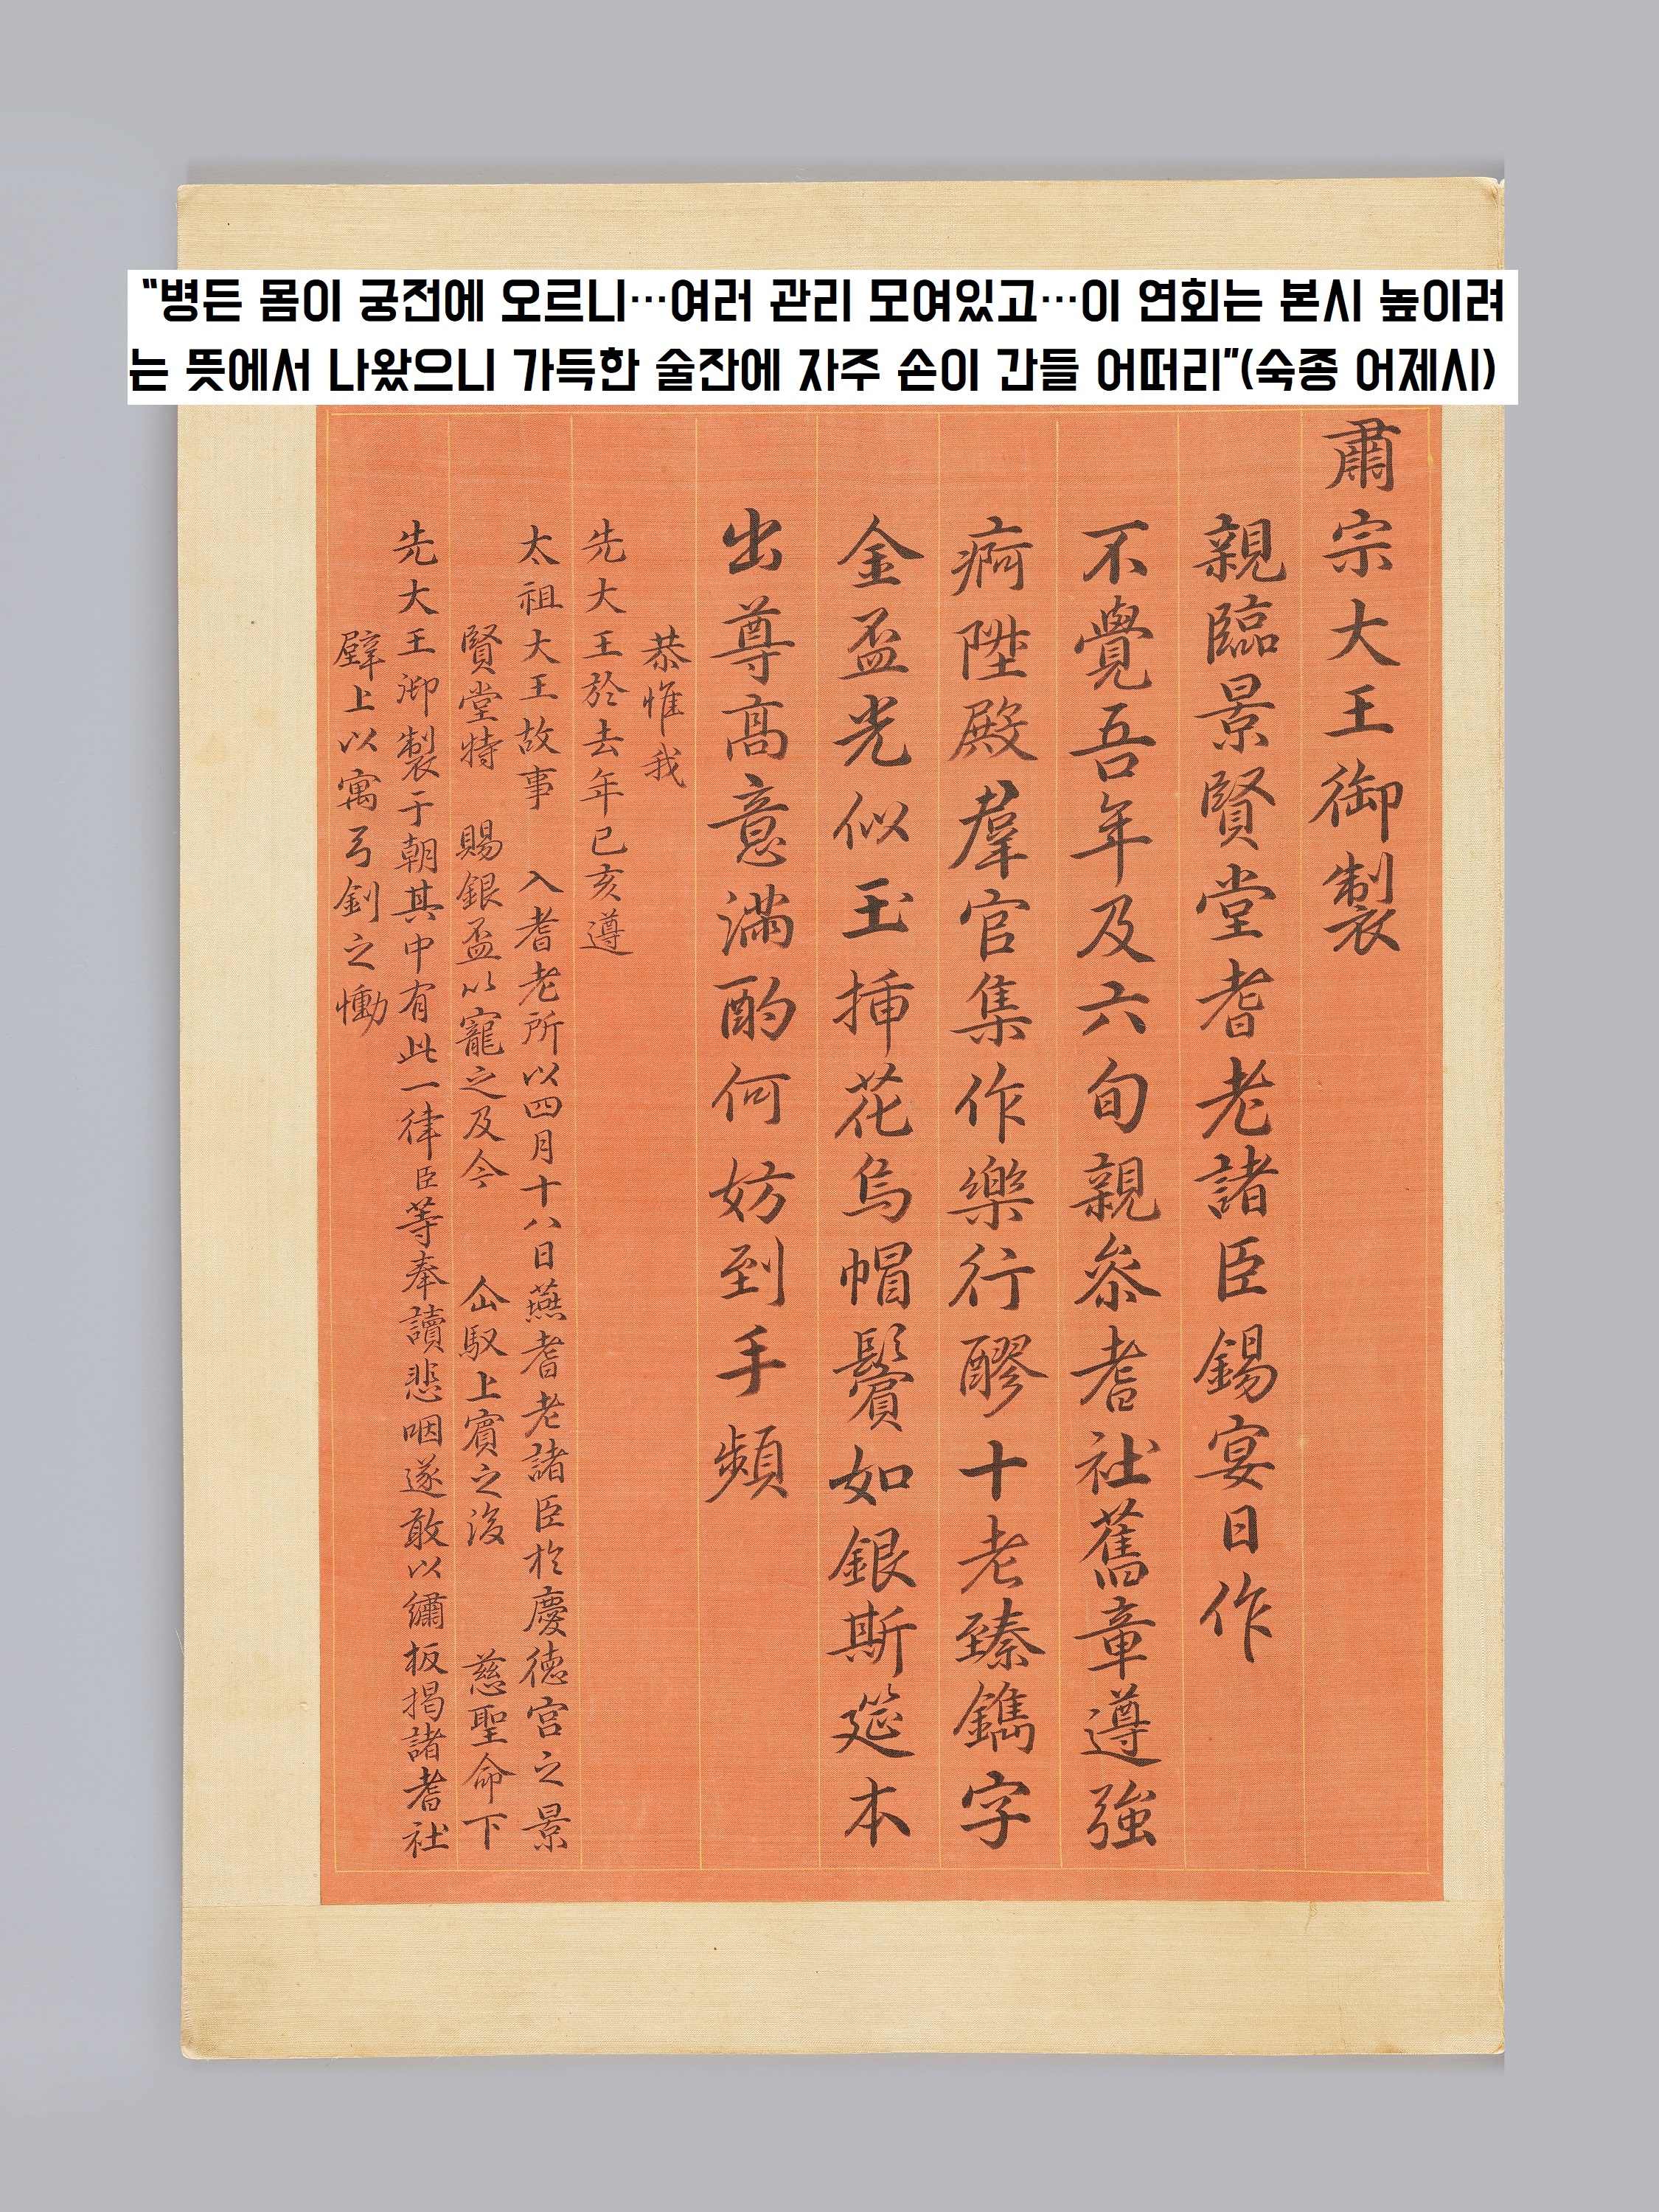 "병든 몸이 궁전에 오르니…여러 관리 모여있고…이 연회는 본시 높이려
는 뜻에서 나왔으니 가득한 술잔에 자주 손이 간들 어떠리"(숙종 어제시)
肅宗大王御製
親臨景賢堂耆老諸臣錫宴日作
不覺吾年及六旬親叅耆社舊章遵強
痾陞殿羣官集作樂行醪十老臻鐫字
金盃光似玉揷花烏帽鬢如銀斯筵本
出尊高意滿酌何妨到手頻
恭惟我
先大王於去年己亥遵
太祖大王故事 入耆老所以四月十八日燕耆老諸臣於慶德宮之景
賢堂特 賜銀盃以寵之及今 仙馭上賓之後 慈聖命下
先大王御製于朝其中有此一律臣等奉讀悲咽遂敢以繡板揭諸耆社
壁上以寓弓釖之慟